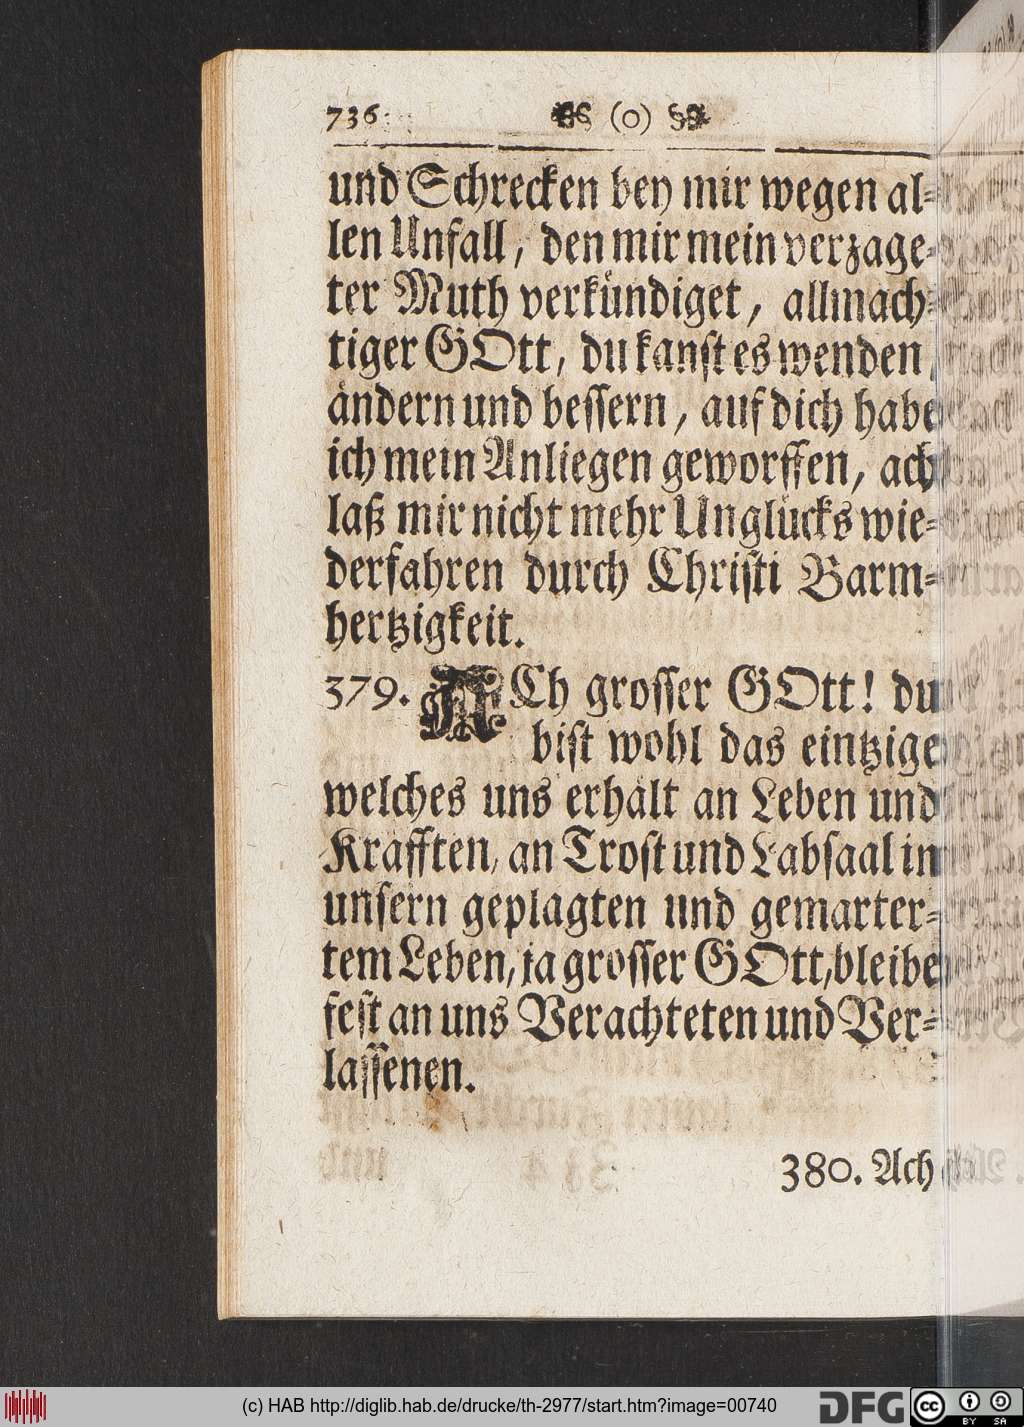 736. (o)
und Schrecken bey mir wegen al-
len Unfall, den mir mein verzage-
ter Muth verkündiget, allmach-
tiger GOtt, du kanst es wenden,
ändern und bessern, auf dich habe
ich mein Anliegen geworffen, ach
laß mir nicht mehr Unglücks wie-
derfahren durch Christi Barm-
hertzigkeit.
379. ACh grosser GOtt! du
bist wohl das eintzige
welches uns erhält an Leben und
Kräfften, an Trost und Labsaal in
unsern geplagten und gemarter-
tem Leben, ja grosser GOtt, bleibe
fest an uns Verachteten und Ver-
lassenen.
380. Ach
(c) HAB http://diglib.hab.de/drucke/th-2977/start.htm?image=00740
DFG
cc BY SA